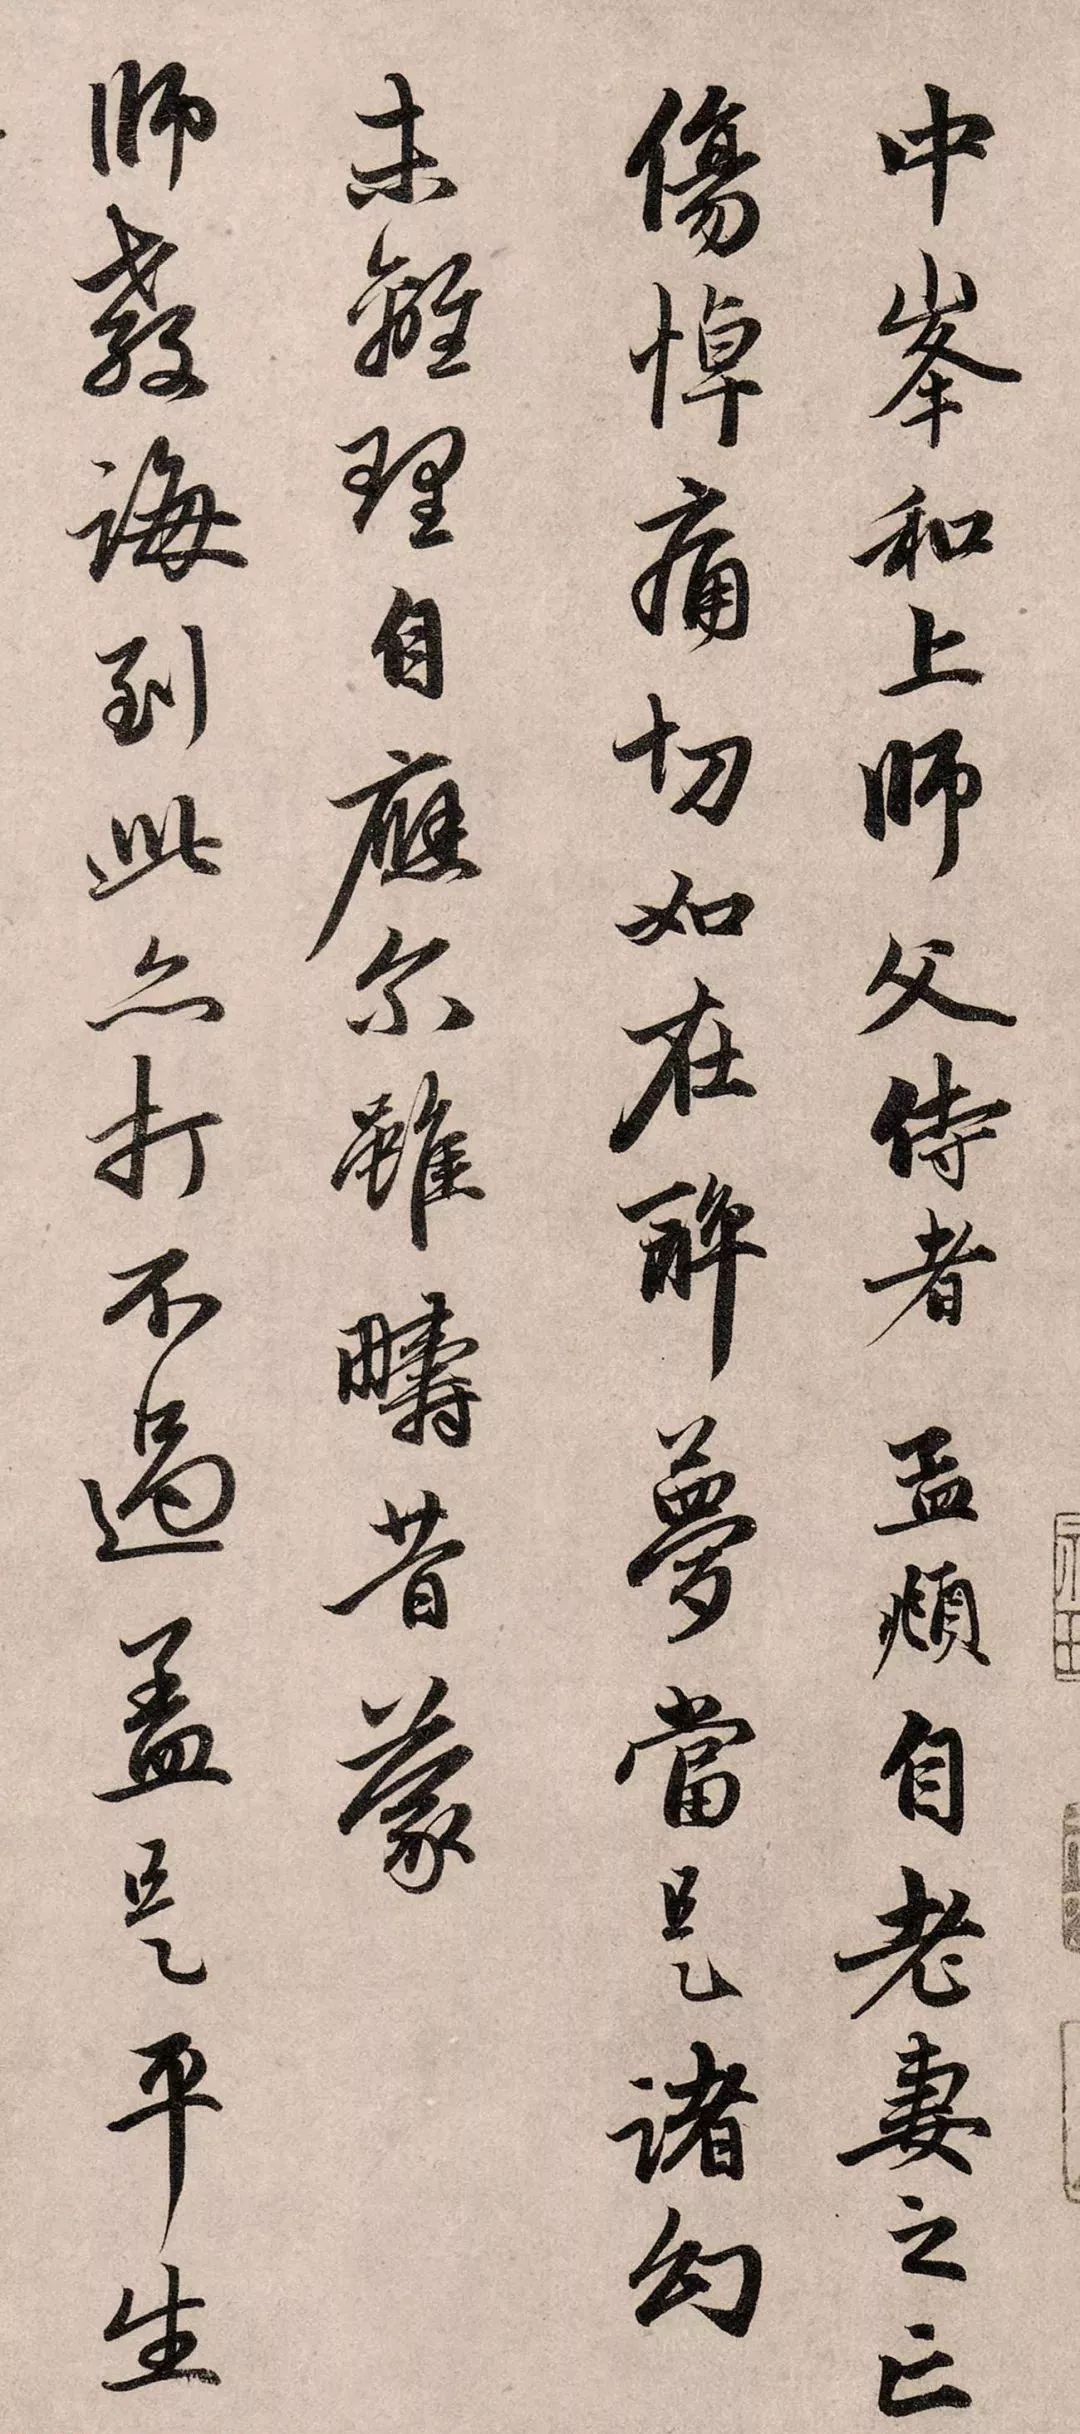 中峯和上師父侍者 孟頫自老妻之亡
傷悼痛切如在醉夢當是諸幻
未離理自應尒雖疇昔蒙
師教誨到此亦打不過盖是平生